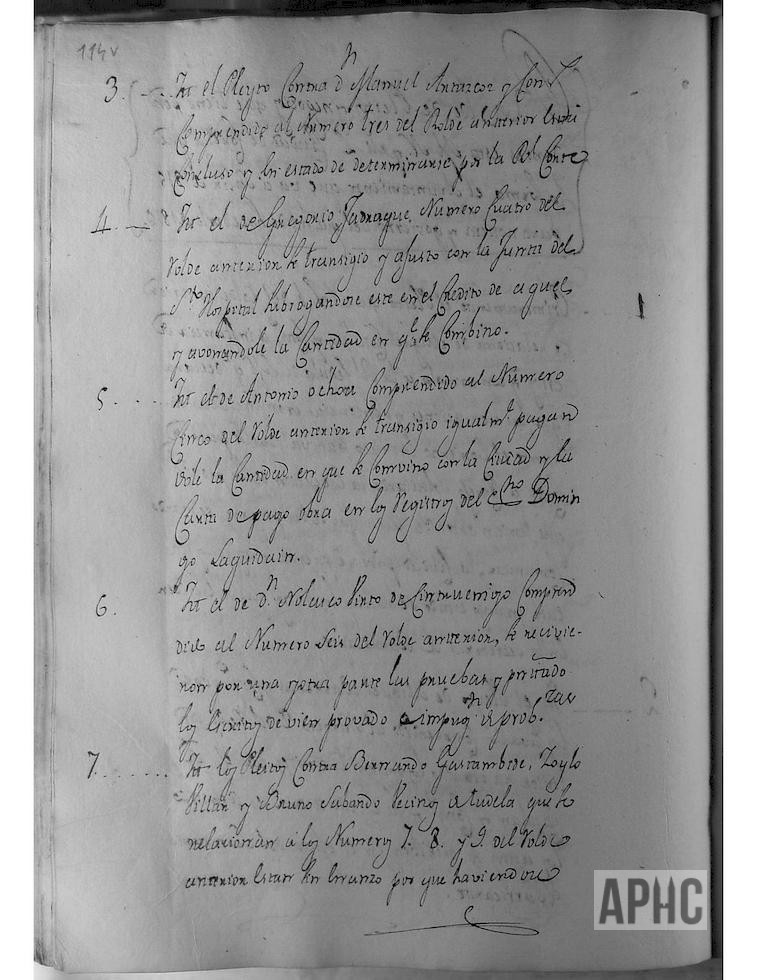 114v
3. It el Pleyto Contra dn Manuel Antarcoz y Cons
Comprendido al Numero tres del Rolde anterior Está
Concluso y en estado de determinarse por la Rl Corte
4. It el de Gregorio Jadraque, Numero Cuatro del
rolde anterior se transigio y ajusto con la Junta del
Sto Hospital subrogandose este en el Credito de aquel
y avonandole la Cantidad en qe se Combino.
5. It el de Antonio ochoa Comprendido al Numero
Cinco del rolde anterior se transigio igualmte pagan
dole la Cantidad en que se Convino con la Ciudad y la
Carta de pago obra en los registros del Domin
go Laguidain.
6. It el de Dn Nolasco Pinto de Cintruenigo Comprend
dido al Numero Seis del rolde anterior, se recivie-
ron por una y otra parte las pruebas y
los Escritos de vien provado e impugn de prob.zas
7. It los Pleitos Contra Bernardo Gastambide, Zoylo
Villar y Bruno Sabando Vecinos de tudela que se
relacionan a los Numeros 7. 8. y 9. del rolde
anterior Estan sin avanzo por que haviendose
APHC